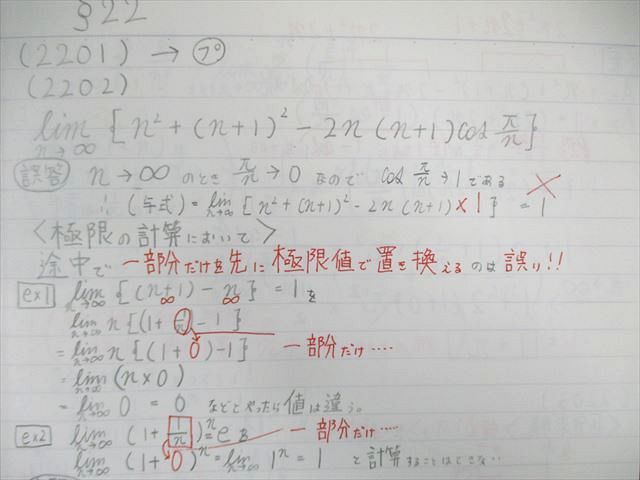 §22
(2201) → プ
(2202)
lim n→∞ [n² + (n+1)² − 2n(n+1)cos π/n]
誤答 n→∞ のとき π/n→0 なので cos π/n→1である
∴ (与式) = lim n→∞ [n² + (n+1)² − 2n(n+1)×1] = 1
〈極限の計算において〉
途中で一部分だけを先に極限値で置き換えるのは誤り!!
ex1 lim n→∞ {(n+1) − n} = 1 を
∞ ∞
lim n→∞ n{(1+1/n) − 1}
= lim n→∞ n{(1+0)−1} 一部分だけ‥‥
= lim n→∞ (n×0)
= lim n→∞ 0 = 0 などとやったら値は違う。
ex2 lim n→∞ (1+1/n)ⁿ = e を 一部分だけ‥‥
lim n→∞ (1+0)ⁿ = lim n→∞ 1ⁿ = 1 と計算することはできない‥